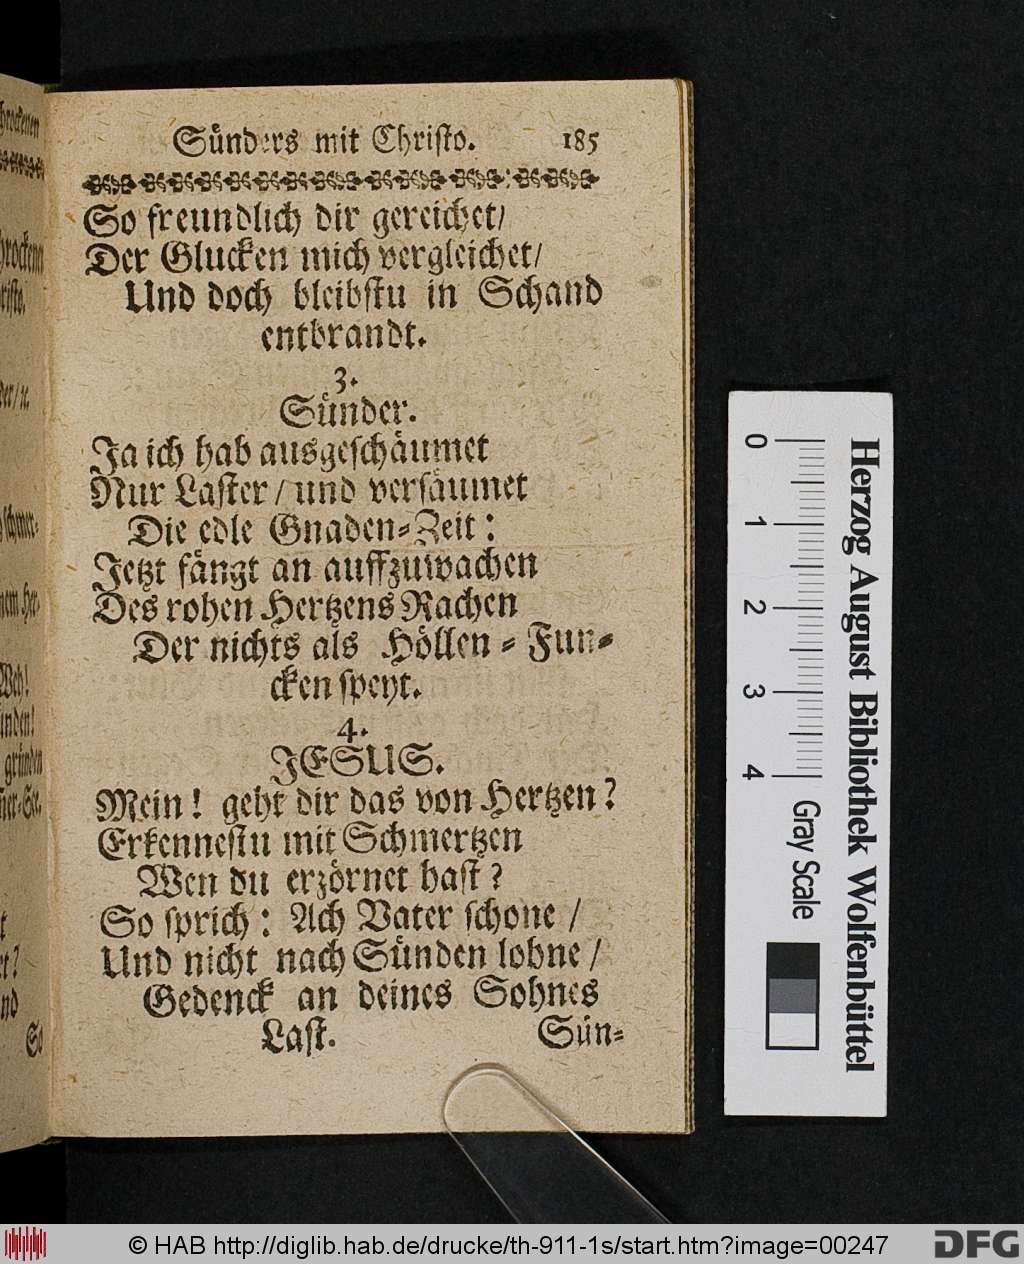 Sünders mit Christo. 185
So freundlich dir gereichet/
Der Glucken mich vergleichet/
Und doch bleibstu in Schand
entbrandt.
3.
Sünder.
Ja ich hab ausgeschäumet
Nur Laster / und versäumet
Die edle Gnaden-Zeit:
Jetzt fängt an auffzuwachen
Des rohen Hertzens Rachen
Der nichts als Höllen-Fun-
cken speyt.
4.
JESUS.
Mein! geht dir das von Hertzen?
Erkennestu mit Schmertzen
Wen du erzörnet hast?
So sprich: Ach Vater schone /
Und nicht nach Sünden lohne /
Gedenck an deines Sohnes
Last.
Sün-
brockenen
der/ ꝛc.
schmer-
nem Her-
Weh!
inden!
gründen
nd
So
0 1 2 3 4
Gray Scale
Herzog August Bibliothek Wolfenbüttel
© HAB http://diglib.hab.de/drucke/th-911-1s/start.htm?image=00247
DFG